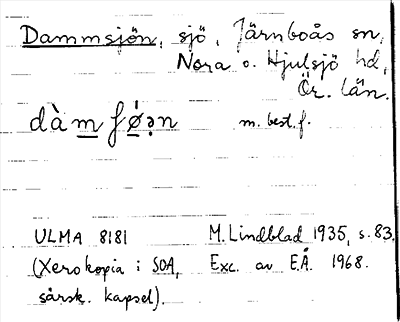 Dammsjön, sjö, Järnboås sn,
Nora o. Hjulsjö hd,
Ör. län.
dàmfǿən m. best. f.
ULMA 8181 M. Lindblad 1935, s. 83.
(Xerokopia i SOA, Exc. av E.Å. 1968.
särsk. kapsel).